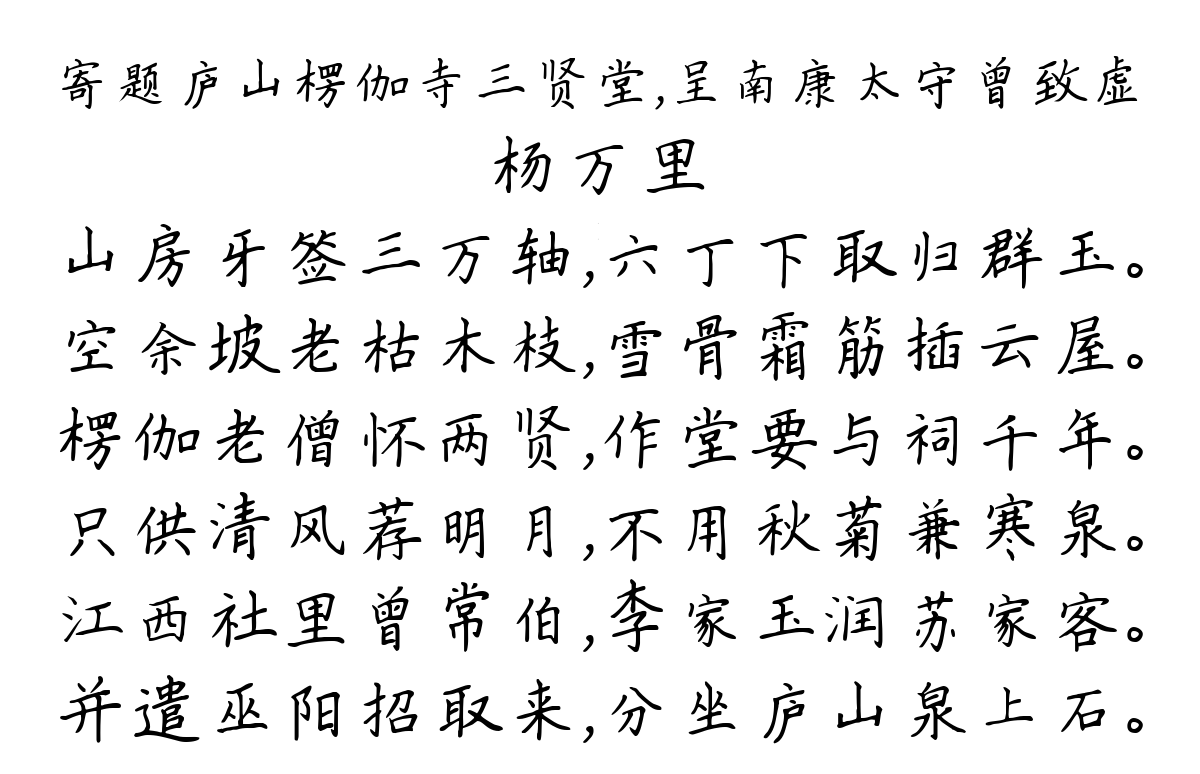 寄题庐山楞伽寺三贤堂,呈南康太守曾致虚
杨万里
山房牙签三万轴,六丁下取归群玉。
空余坡老枯木枝,雪骨霜筋插云屋。
楞伽老僧怀两贤,作堂要与祠千年。
只供清风荐明月,不用秋菊兼寒泉。
江西社里曾常伯,李家玉润苏家客。
并遣巫阳招取来,分坐庐山泉上石。